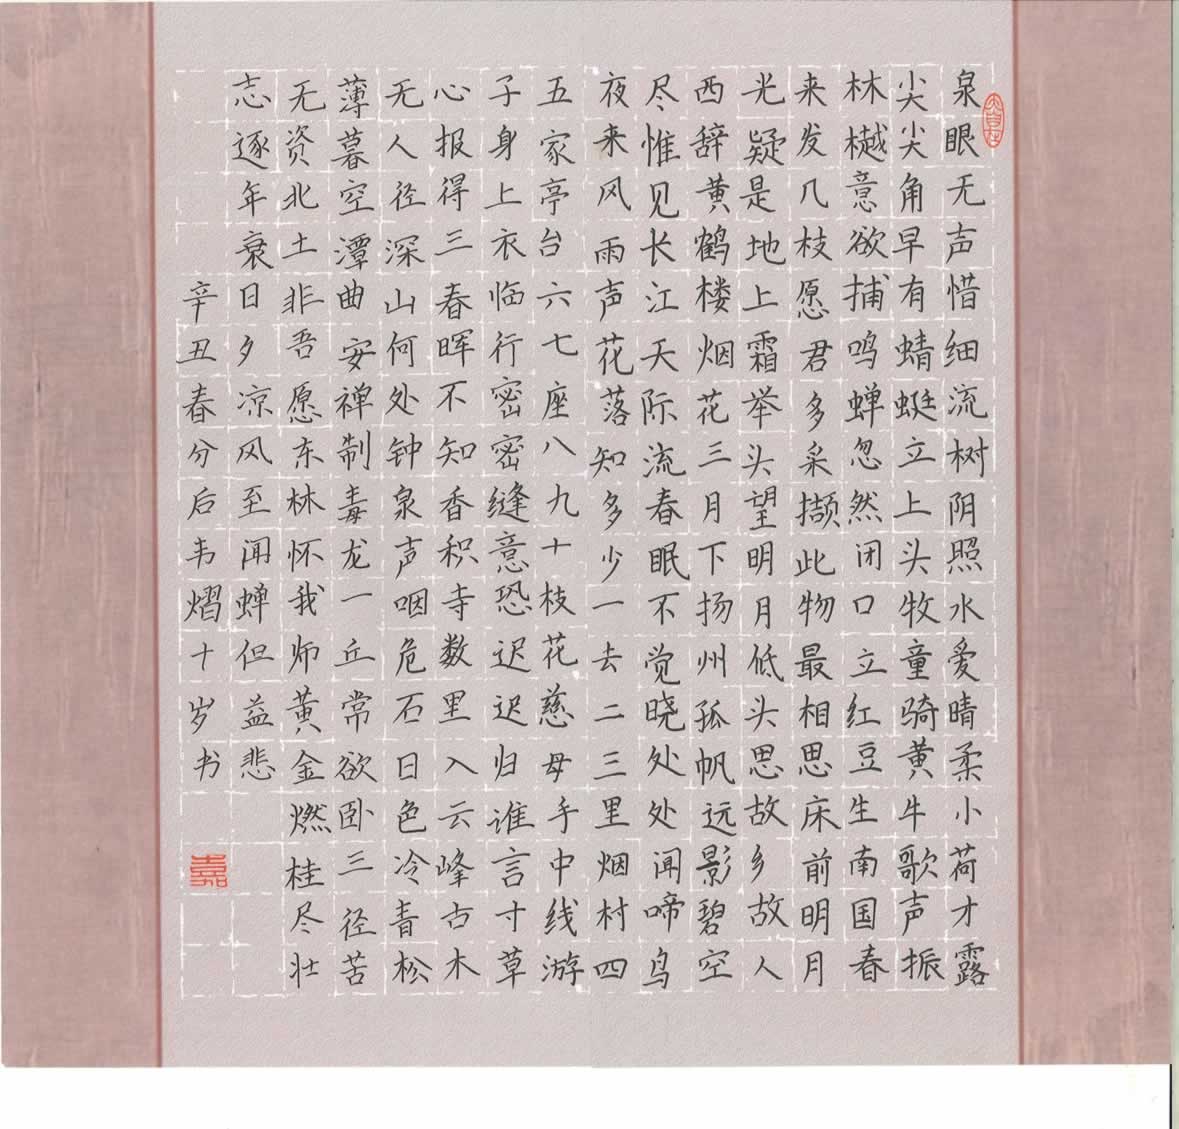 大自在
泉眼无声惜细流树阴照水爱晴柔小荷才露
尖尖角早有蜻蜓立上头牧童骑黄牛歌声振
林樾意欲捕鸣蝉忽然闭口立红豆生南国春
来发几枝愿君多采撷此物最相思床前明月
光疑是地上霜举头望明月低头思故乡故人
西辞黄鹤楼烟花三月下扬州孤帆远影碧空
尽惟见长江天际流春眠不觉晓处处闻啼鸟
夜来风雨声花落知多少一去二三里烟村四
五家亭台六七座八九十枝花慈母手中线游
子身上衣临行密密缝意恐迟迟归谁言寸草
心报得三春晖不知香积寺数里入云峰古木
无人径深山何处钟泉声咽危石日色冷青松
薄暮空潭曲安禅制毒龙一丘常欲卧三径苦
无资北土非吾愿东林怀我师黄金燃桂尽壮
志逐年衰日夕凉风至闻蝉但益悲
辛丑春分后韦熠十岁书